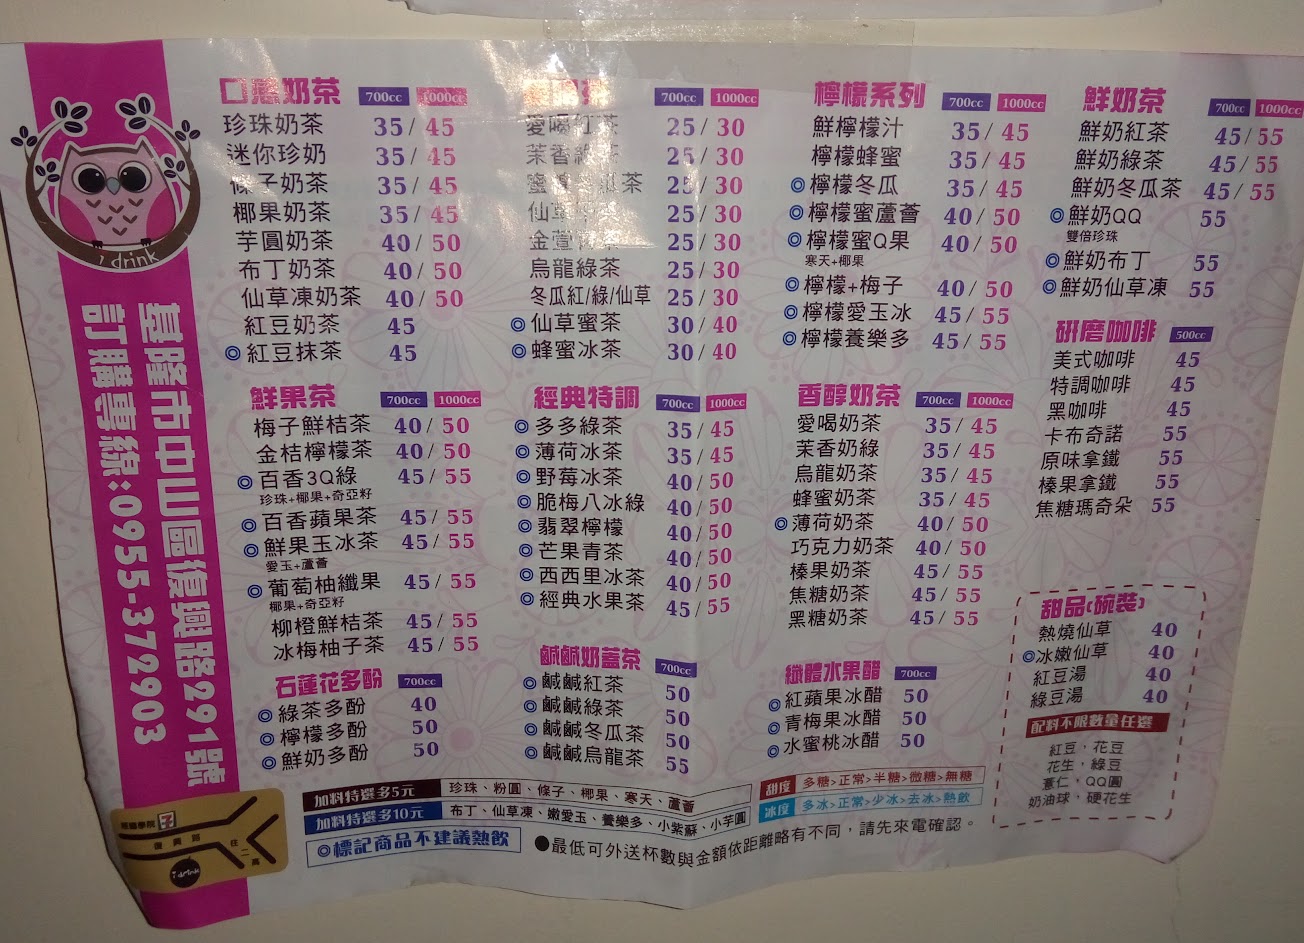 i drink
基隆市中山區復興路291號
訂購專線:0955-372903
口感奶茶 700cc 1000cc
珍珠奶茶 35/45
迷你珍奶 35/45
條子奶茶 35/45
椰果奶茶 35/45
芋圓奶茶 40/50
布丁奶茶 40/50
仙草凍奶茶 40/50
紅豆奶茶 45
◎紅豆抹茶 45
鮮果茶 700cc 1000cc
梅子鮮桔茶 40/50
金桔檸檬茶 40/50
◎百香3Q綠 45/55
珍珠+椰果+奇亞籽
◎百香蘋果茶 45/55
◎鮮果玉冰茶 45/55
愛玉+蘆薈
◎葡萄柚纖果 45/55
椰果+奇亞籽
柳橙鮮桔茶 45/55
冰梅柚子茶 45/55
石蓮花多酚 700cc
◎綠茶多酚 40
◎檸檬多酚 50
◎鮮奶多酚 50
700cc 1000cc
愛喝紅茶 25/30
茉香綠茶 25/30
茶 25/30
仙草 25/30
金萱 25/30
烏龍綠茶 25/30
冬瓜紅/綠/仙草 25/30
◎仙草蜜茶 30/40
◎蜂蜜冰茶 30/40
經典特調 700cc 1000cc
◎多多綠茶 35/45
◎薄荷冰茶 35/45
◎野莓冰茶 40/50
◎脆梅八冰綠 40/50
◎翡翠檸檬 40/50
◎芒果青茶 40/50
◎西西里冰茶 40/50
◎經典水果茶 45/55
鹹鹹奶蓋茶 700cc
◎鹹鹹紅茶 50
◎鹹鹹綠茶 50
◎鹹鹹冬瓜茶 50
◎鹹鹹烏龍茶 55
檸檬系列 700cc 1000cc
鮮檸檬汁 35/45
檸檬蜂蜜 35/45
◎檸檬冬瓜 35/45
◎檸檬蜜蘆薈 40/50
◎檸檬蜜Q果 40/50
寒天+椰果
◎檸檬+梅子 40/50
◎檸檬愛玉冰 45/55
◎檸檬養樂多 45/55
香醇奶茶 700cc 1000cc
愛喝奶茶 35/45
茉香奶綠 35/45
烏龍奶茶 35/45
蜂蜜奶茶 35/45
◎薄荷奶茶 40/50
巧克力奶茶 40/50
榛果奶茶 45/55
焦糖奶茶 45/55
黑糖奶茶 45/55
纖體水果醋 700cc
◎紅蘋果冰醋 50
◎青梅果冰醋 50
◎水蜜桃冰醋 50
鮮奶茶 700cc 1000cc
鮮奶紅茶 45/55
鮮奶綠茶 45/55
鮮奶冬瓜茶 45/55
◎鮮奶QQ 55
雙倍珍珠
◎鮮奶布丁 55
◎鮮奶仙草凍 55
研磨咖啡 500cc
美式咖啡 45
特調咖啡 45
黑咖啡 45
卡布奇諾 55
原味拿鐵 55
榛果拿鐵 55
焦糖瑪奇朵 55
甜品(碗裝)
熱燒仙草 40
◎冰嫩仙草 40
紅豆湯 40
綠豆湯 40
配料不限數量任選
紅豆，花豆
花生，綠豆
薏仁，QQ圓
奶油球，硬花生
加料特選多5元 珍珠、粉圓、條子、椰果、寒天、蘆薈
加料特選多10元 布丁、仙草凍、嫩愛玉、養樂多、小紫蘇、小芋圓
甜度 多糖>正常>半糖>微糖>無糖
冰度 多冰>正常>少冰>去冰>熱飲
◎標記商品不建議熱飲
●最低可外送杯數與金額依距離略有不同，請先來電確認。
復興路
往二高
i drink